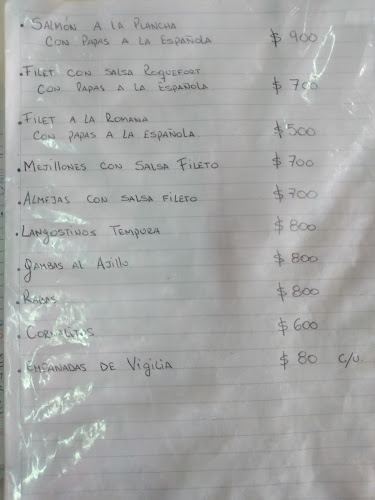 • SALMÓN A LA PLANCHA
CON PAPAS A LA ESPAÑOLA $ 900
• FILET CON SALSA ROQUEFORT
CON PAPAS A LA ESPAÑOLA $ 700
• FILET A LA ROMANA
CON PAPAS A LA ESPAÑOLA. $ 500
• MEJILLONES CON SALSA FILETO $ 700
• ALMEJAS CON SALSA FILETO $ 700
• LANGOSTINOS TEMPURA $ 800
• GAMBAS AL AJILLO $ 800
• RABAS $ 800
• CORNALITOS $ 600
• EMPANADAS DE VIGILIA $ 80 C/U.